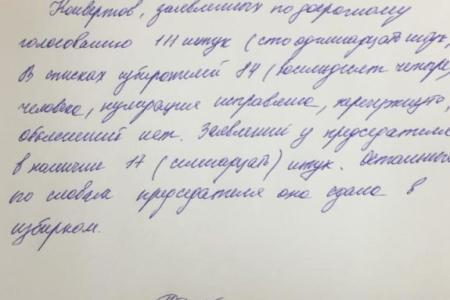 Конвертов, заявленных по досрочному
голосованию 111 штук (сто одиннадцать штук,
В списках избирателей 84 (восемьдесят четыре)
человека, нумерация исправлена,
объяснений нет. Заявлений у председателя
в наличие 17 (семнадцать) штук. Остальные
по словам председателя она сдала в
избирком.